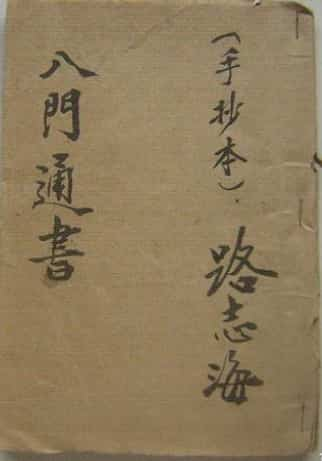 （手抄本）. 路志海
八門通書